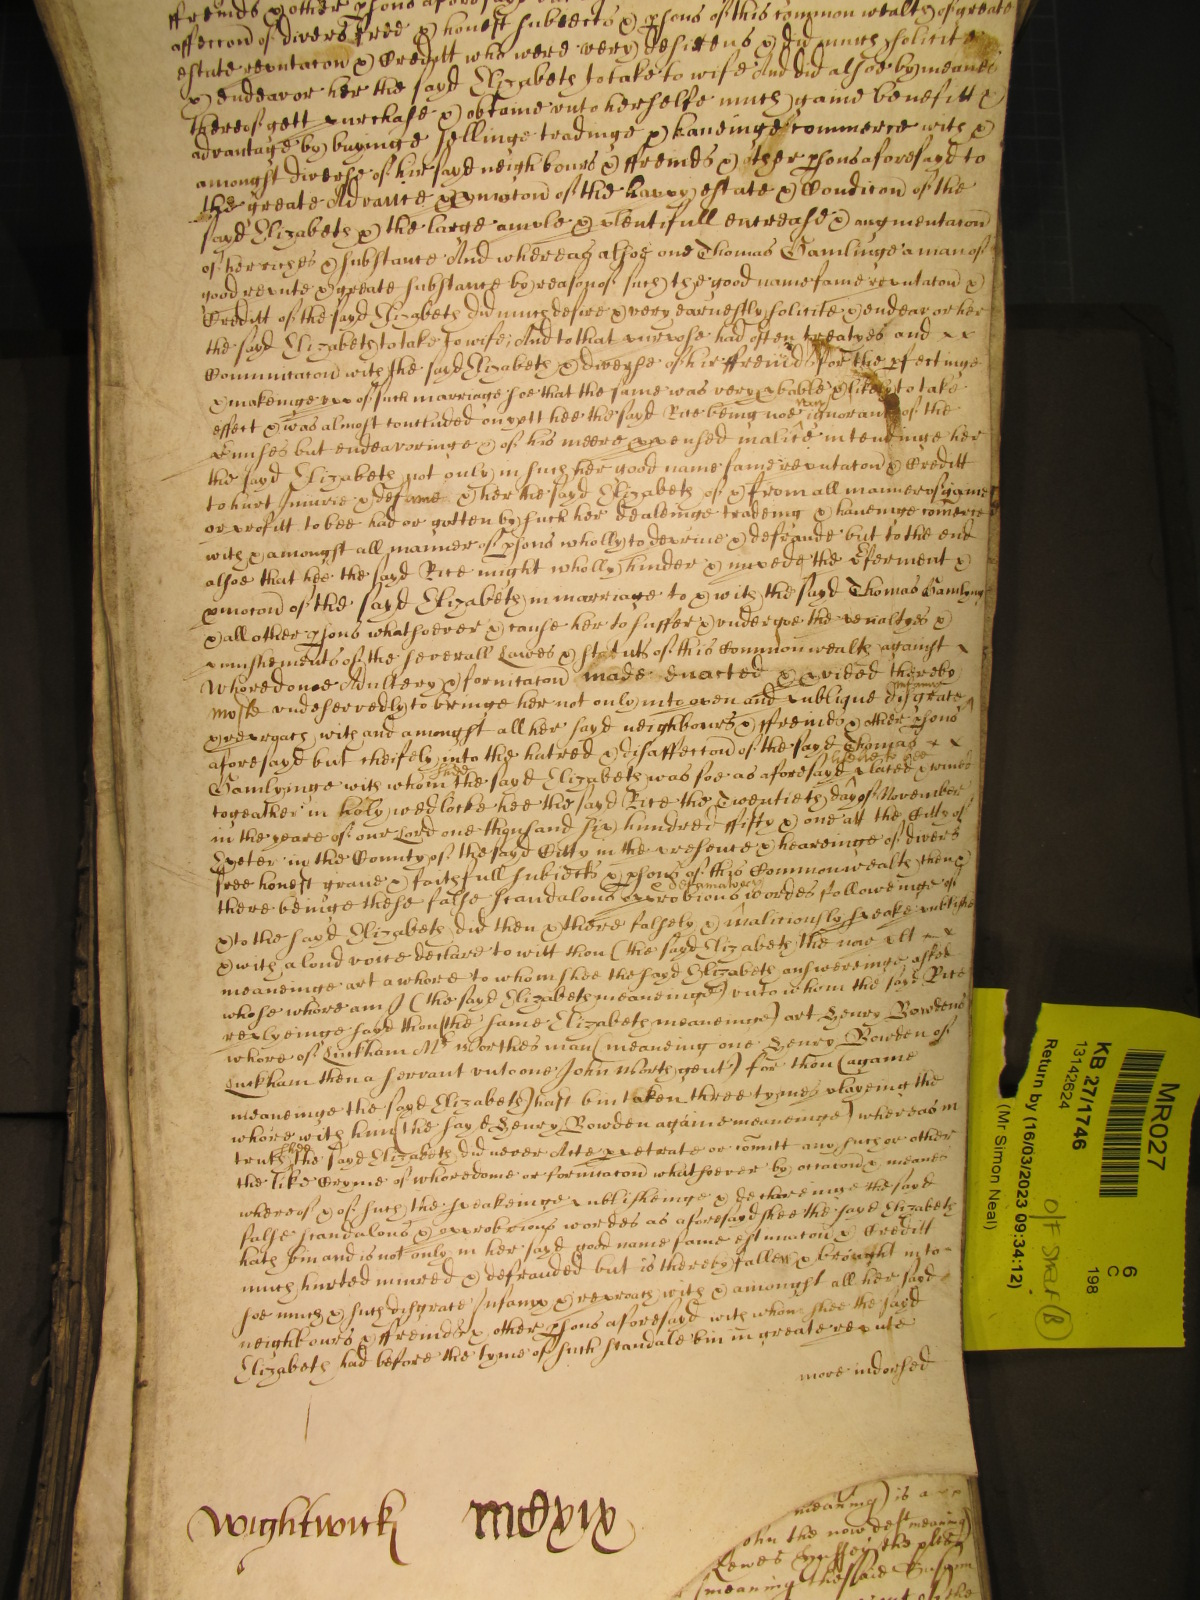 ffreinds & other psons aforesayd
affeccon of divers free & honest subiects & psons of this common wealth of greate
estate reputacon & Creditt who were very desirous & did much solicite
& endeavor her the sayd Elizabeth to take to wife And did alsoe by meanes
thereof gett purchase & obtaine unto herselfe much gaine benefitt &
advantage by buyinge sellinge tradinge & haveinge commerce with &
amongst diverse of hir sayd neighbours & ffreinds & other psons aforesayd to
the greate Advance & pmocon of the happy estate & Condicon of the
sayd Elizabeth & the large ample & plentifull encrease & augmentacon
of her riches & substance And whereas alsoe one Thomas Gamlinge a man of
good repute & greate substance by reason of such the good name fame reputacon &
Creditt of the sayd Elizabeth did much desire & very earnestly solicite & endeavor her
the sayd Elizabeth to take to wife, And to that purpose had often treatyes and x x
Communicacon with the sayd Elizabeth & diverse of hir ffreinds for the pfectinge
& makeinge upp of such marriage soe that the same was very pbable & likely to take
effect & was almost concluded on yett hee the sayd Rice being not ignorant of the
pmisses but endeavoringe & of his meere ppensed malice intendinge her
the sayd Elizabeth not only in such her good name fame reputacon & Creditt
to hurt iniurie & defame & her the sayd Elizabeth of & from all manner of gaine
or profitt to bee had or gotten by such her dealeinge tradeing & haveinge comerce
with & amongst all manner of psons wholly to deprive & defraude but to the end
alsoe that hee the sayd Rice might wholly hinder & impede the pferment &
pmocon of the sayd Elizabeth in marriage to & with the sayd Thomas Gamlynge
& all other psons whatsoever & cause her to suffer & undergoe the penaltyes &
punishements of the severall Lawes & statuts of this Common wealth against x
Whoredome Adultery & fornicacon made enacted & pvided thereby
most undeservedly to bringe her not only into open and publique infamie disgrace
& reproach with and amongst all her sayd neighbours & ffreinds & other psons
aforesayd but cheifely into the hatred & disaffeccon of the sayd Thomas x x
Gamlyinge with whom shee the sayd Elizabeth was soe as aforesayd
togeather in holy wedlocke hee the sayd Rice the Twentieth day of November
in the yeare of our Lord one thousand six hundred ffifty & one att the Citty of
Exeter in the County of the sayd Citty in the presence & heareinge of divers
free honest grave & faithfull subiects & psons of this Commonwealth then &
there beinge these false scandalous opprobrious & defamatory wordes followeinge of
& to the sayd Elizabeth did then & there falsely & maliciously speake publishe
& with a loud voice declare to witt thou (the sayd Elizabeth the now plt x x
meaneinge art a whore to whom shee the sayd Elizabeth answereinge asked
whose whore am I (the sayd Elizabeth meaneinge) unto whom the sayd Rice
replyeinge sayd thou (the same Elizabeth meaneinge) art Henry Bowdens
whore of Luckham Mr Worthes man (meaneing one Henry Bowden of
Luckham then a servant unto one John Worth gent) for thou (againe
meaneinge the sayd Elizabeth) hast bin taken three tymes playeing the
whore with him (the sayd Henry Bowden againe meaneinge) whereas in
truth shee the sayd Elizabeth did never Acte ppetrate or comitt any such or other
the like Cryme of whoredome or fornicacon whatsoever by occacon & meanes
whereof & of such the speakeinge publisheinge & declareinge the sayd
false scandalous & opprobrious wordes as aforesayd shee the sayd Elizabeth
hath bin and is not only in her sayd good name fame estimacon & Creditt
much hurted iniured & defrauded but is thereby fallen & brought into
soe much & such disgrace Infamy & reproach with & amongst all her sayd
neighbours & ffreinds & other psons aforesayd with whom shee the sayd
Elizabeth had before the tyme of such scandale bin in greate repute
more indorsed
Wightwick
meaning) is a
John the now deft meaning)
Lewes the plt
(meaning the said
MR027
6
C
198
KB 27/1746
13142624
Return by (16/03/2023 09:34:12)
(Mr Simon Neal)
O/F SHELF (B)